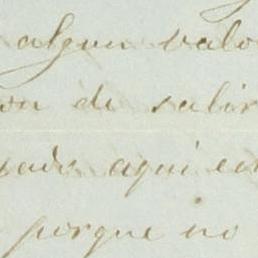 algun valo
on de salir
sado aqui en
porque no